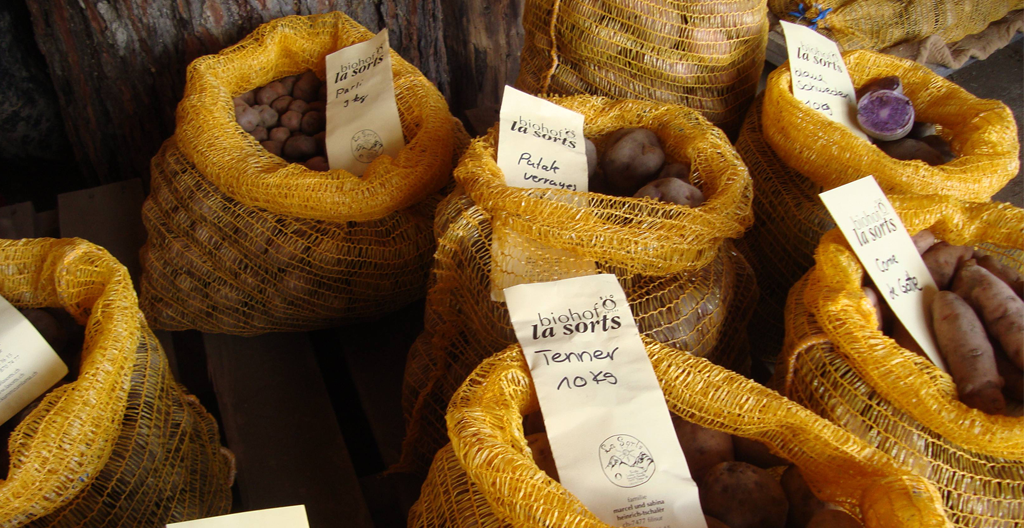 biohof
la sorts
Parli
9 kg
biohof
la sorts
Patak
verrayes
biohof
la sorts
blaue
Schweden
10kg
biohof
la sorts
Corne
de Gatte
biohof
la sorts
Tenner
10 kg
La Sorts
familie
marcel und sabina
heinrich-tschalèr